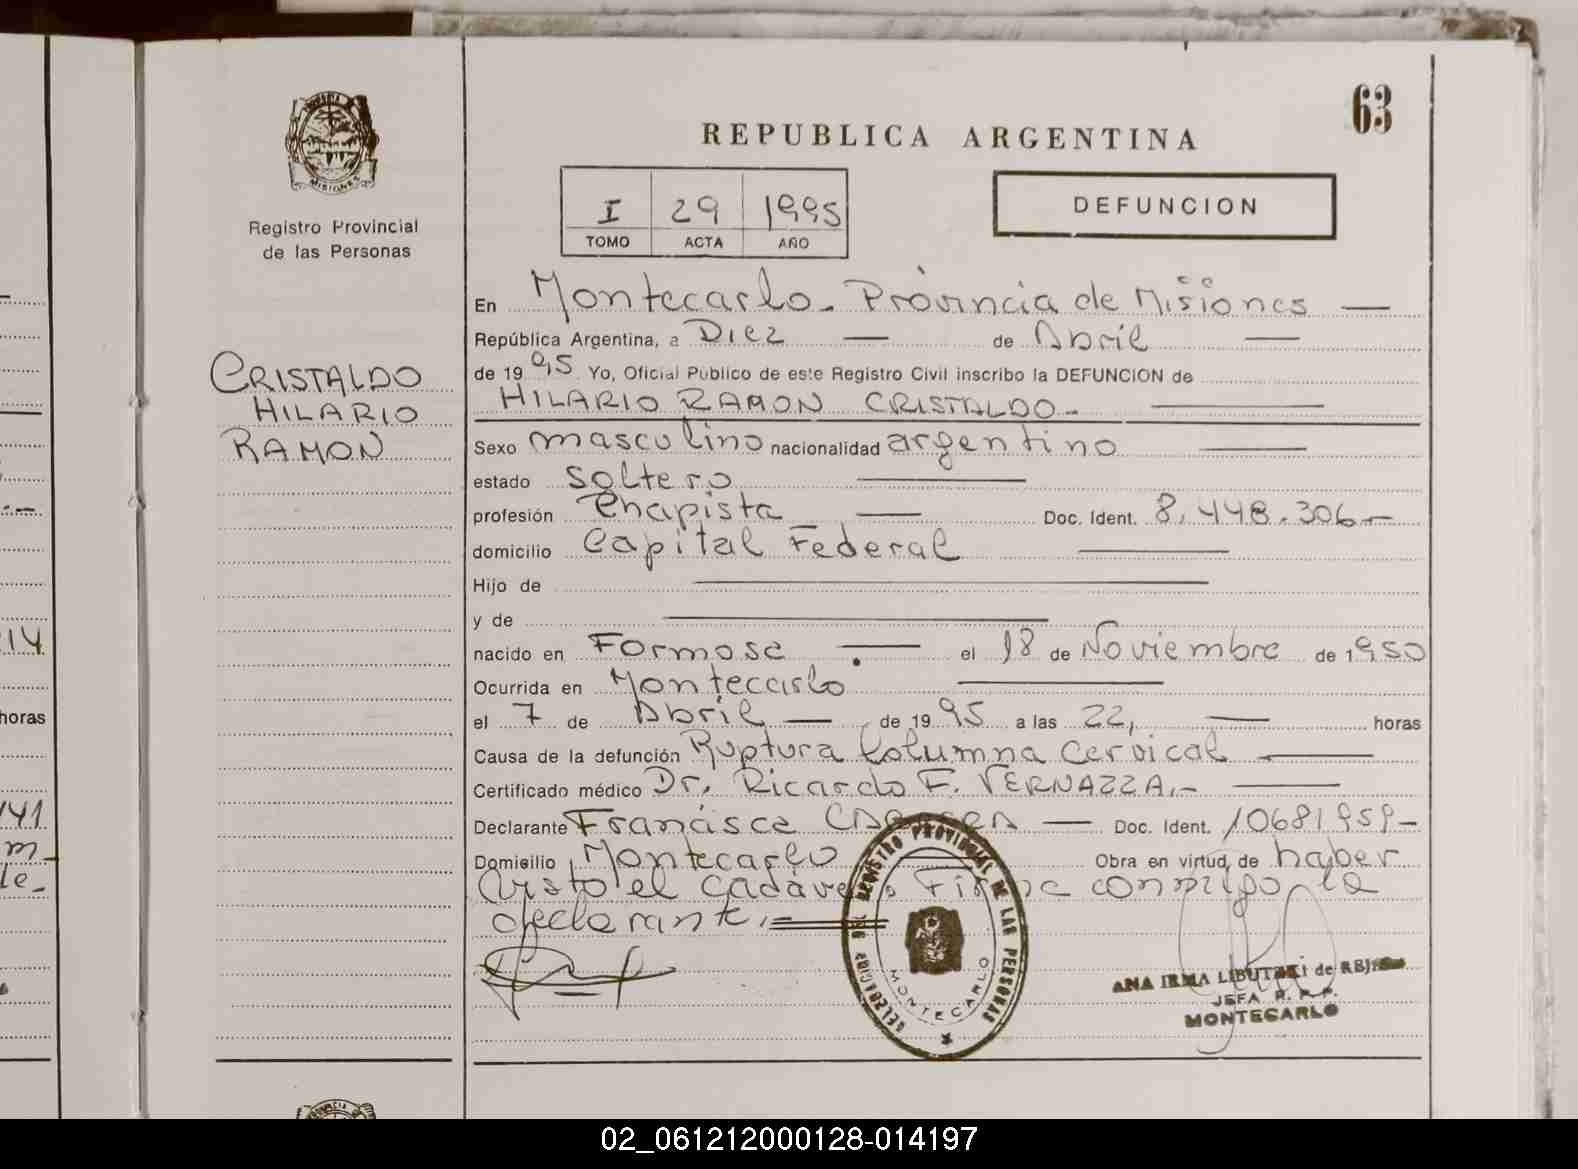 63
REPUBLICA ARGENTINA
PROVINCIA DE
MISIONES
Registro Provincial
de las Personas
I 29 1995
TOMO ACTA AÑO
DEFUNCION
CRISTALDO
HILARIO
RAMON
En Montecarlo - Provincia de Misiones
República Argentina, a Diez de Abril
de 1995 Yo, Oficial Público de este Registro Civil inscribo la DEFUNCION de
HILARIO RAMON CRISTALDO-
Sexo masculino nacionalidad argentino
estado soltero
profesión Chapista Doc. Ident. 8.448.306-
domicilio Capital Federal
Hijo de
y de
nacido en Formosa el 18 de Noviembre de 1950
Ocurrida en Montecarlo
el 7 de Abril de 1995 a las 22, horas
Causa de la defunción Ruptura Columna Cervical
Certificado médico Dr. Ricardo F. VERNAZZA.-
Declarante Francisca Doc. Ident. 10681959-
Domicilio Montecarlo Obra en virtud de haber
visto el cadáver Firma conmigo la
declarante.
DELEGACION DEL REGISTRO PROVINCIAL DE LAS PERSONAS
MONTECARLO
ANA IRMA de
JEFA R. P. P.
MONTECARLO
horas
02_061212000128-014197